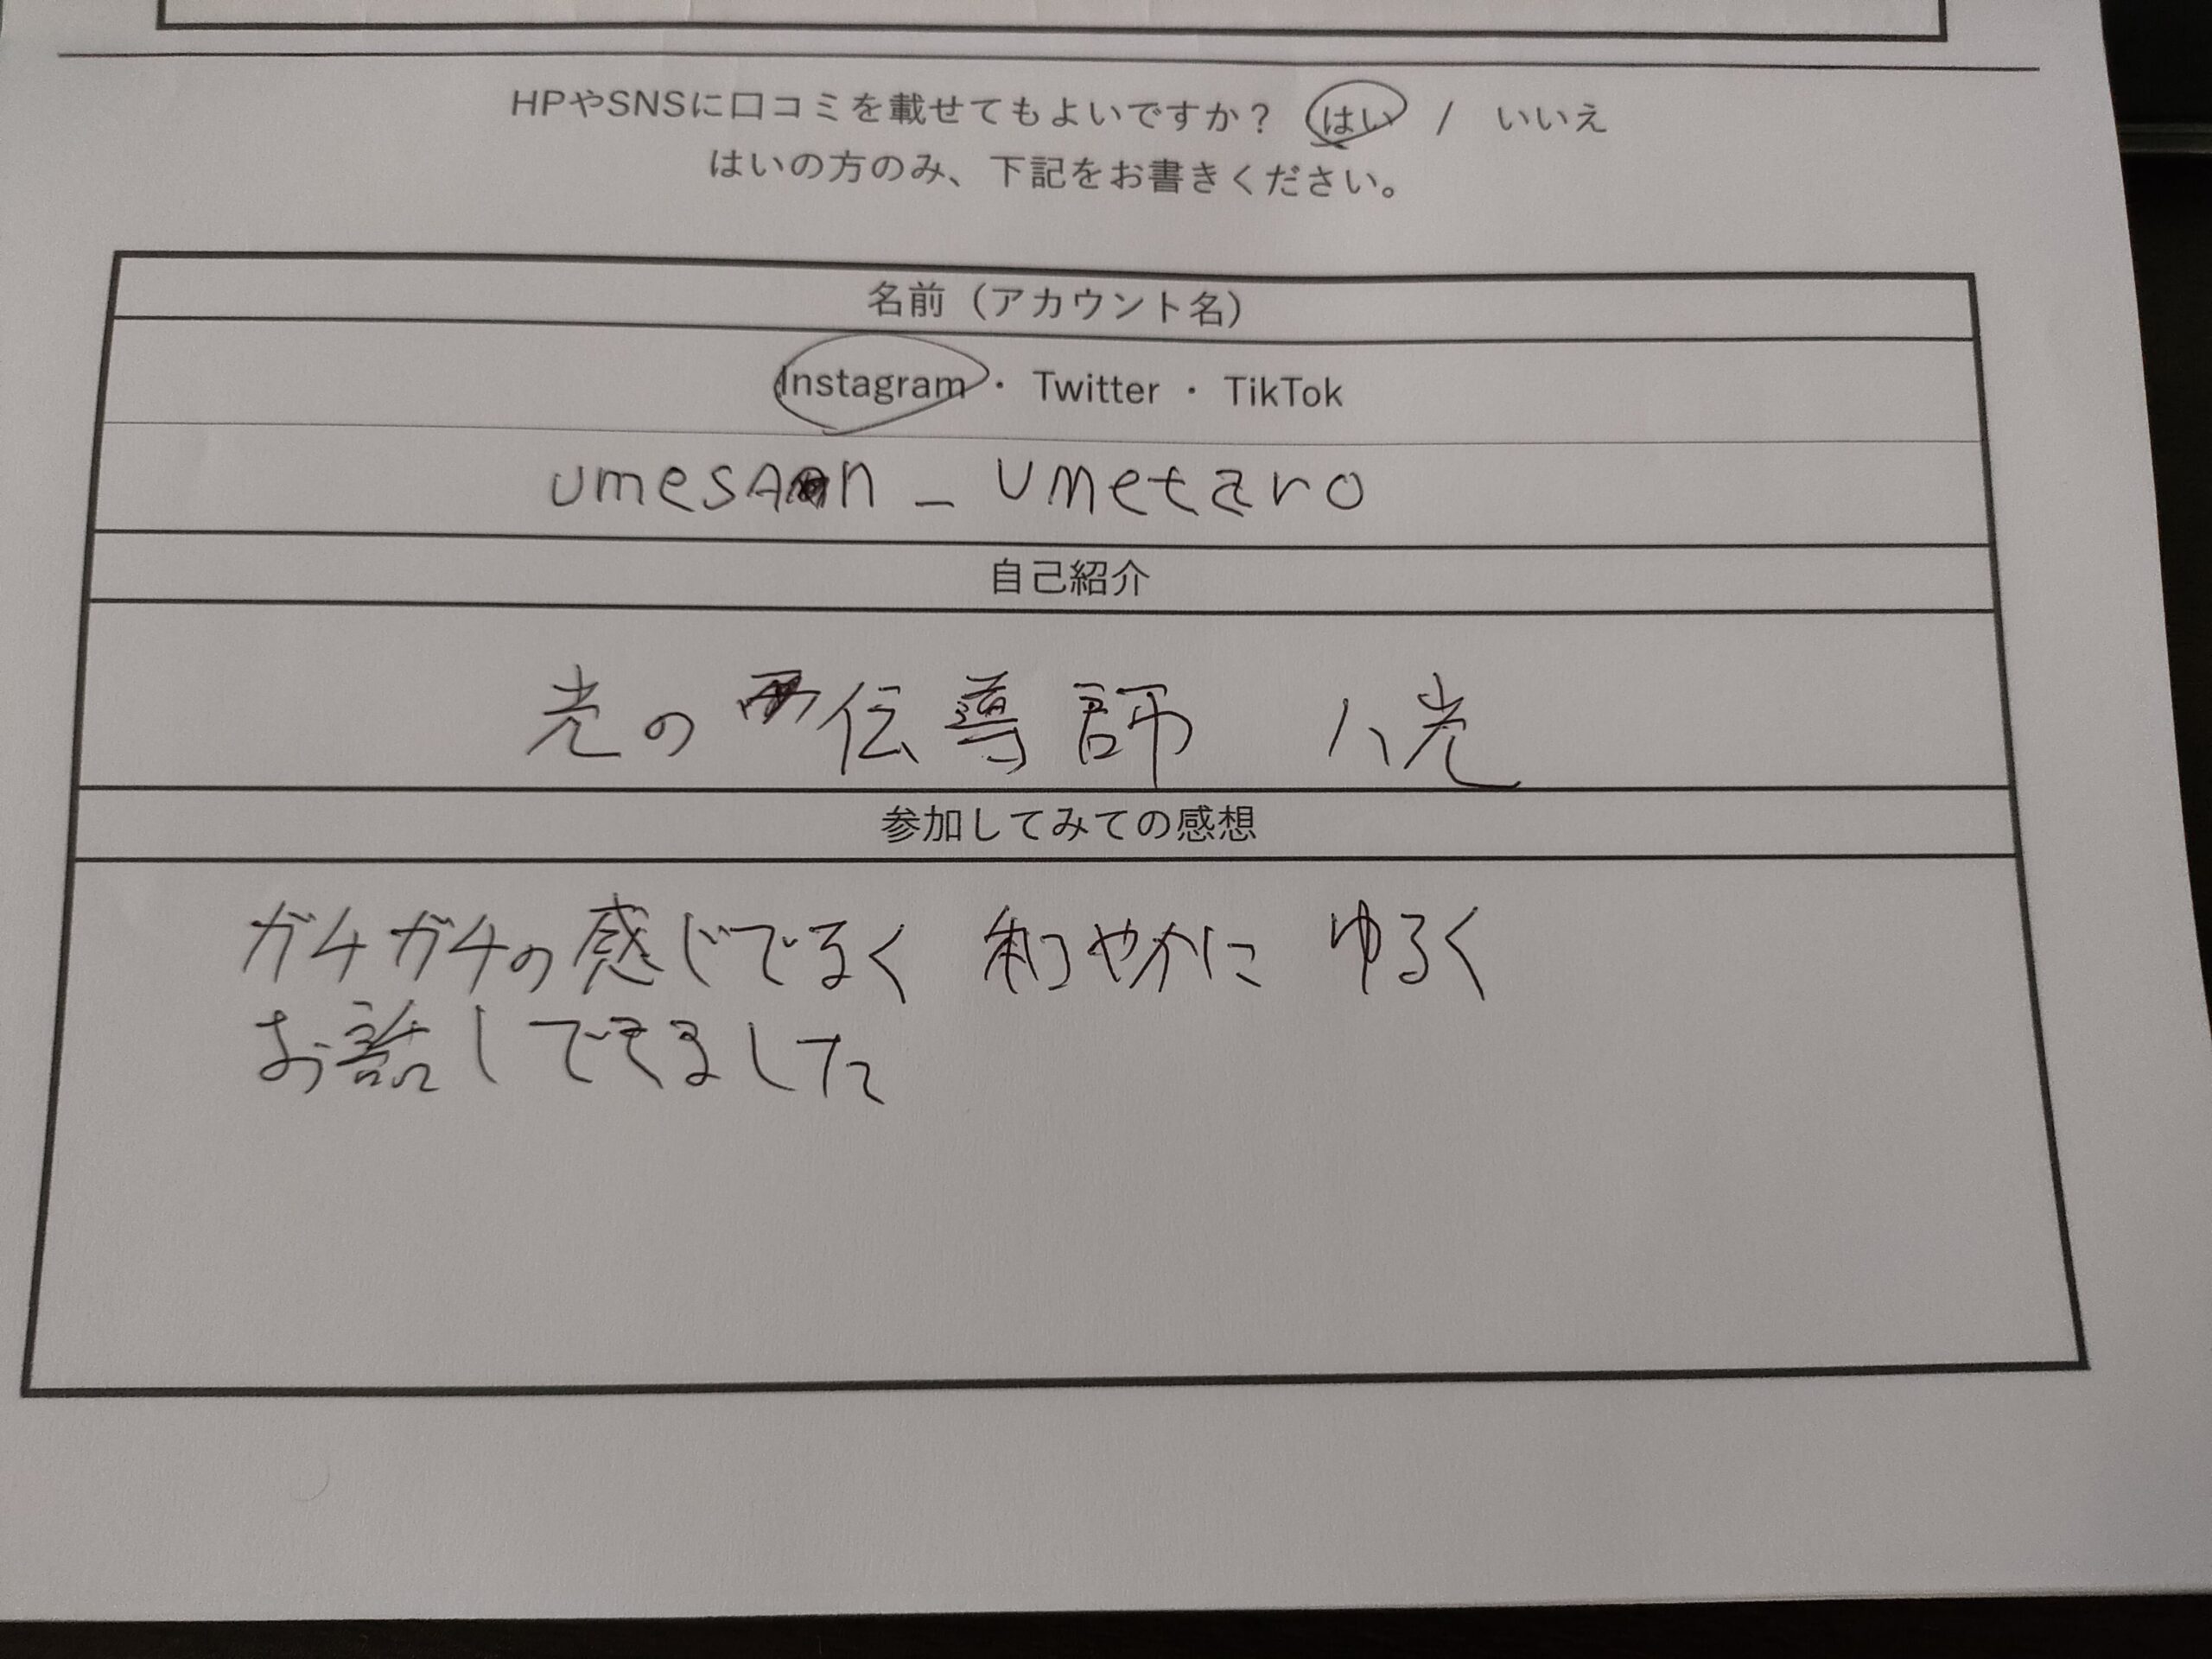 HPやSNSに口コミを載せてもよいですか？ はい / いいえ
はいの方のみ、下記をお書きください。
名前（アカウント名）
Instagram ・ Twitter ・ TikTok
umesAn _ Umetaro
自己紹介
光の 伝導師 八光
参加してみての感想
ガチガチの感じでなく 和やかに ゆるく
お話しできました